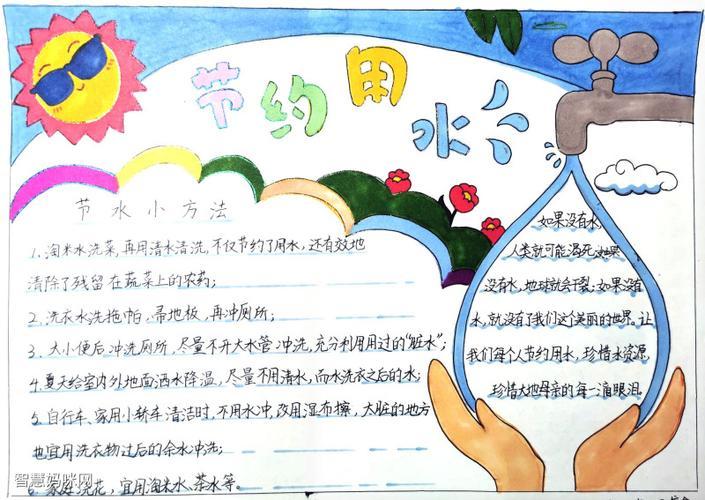 节约用水
节水小方法
1、淘米水洗菜,再用清水清洗,不仅节约了用水,还有效地
清除了残留在蔬菜上的农药;
2、洗衣水洗拖帕、帚地板,再冲厕所;
3、大小便后冲洗厕所,尽量不开大水管冲洗,充分利用用过的“脏水”;
4、夏天给室内外地面洒水降温,尽量不用清水,而水洗衣之后的水;
5、自行车、家用小轿车清洁时,不用水冲,改用湿布擦,大脏的地方
也宜用洗衣物过后的余水冲洗;
6、家庭浇花,宜用淘米水、茶水等。
如果没有水,
人类就可能渴死
没有水,地球就会干裂;如果没有
水,就没有了我们这个美丽的世界。让
我们每个人节约用水,珍惜水资源,
珍惜大地母亲的每一滴眼泪。
智慧妈咪网